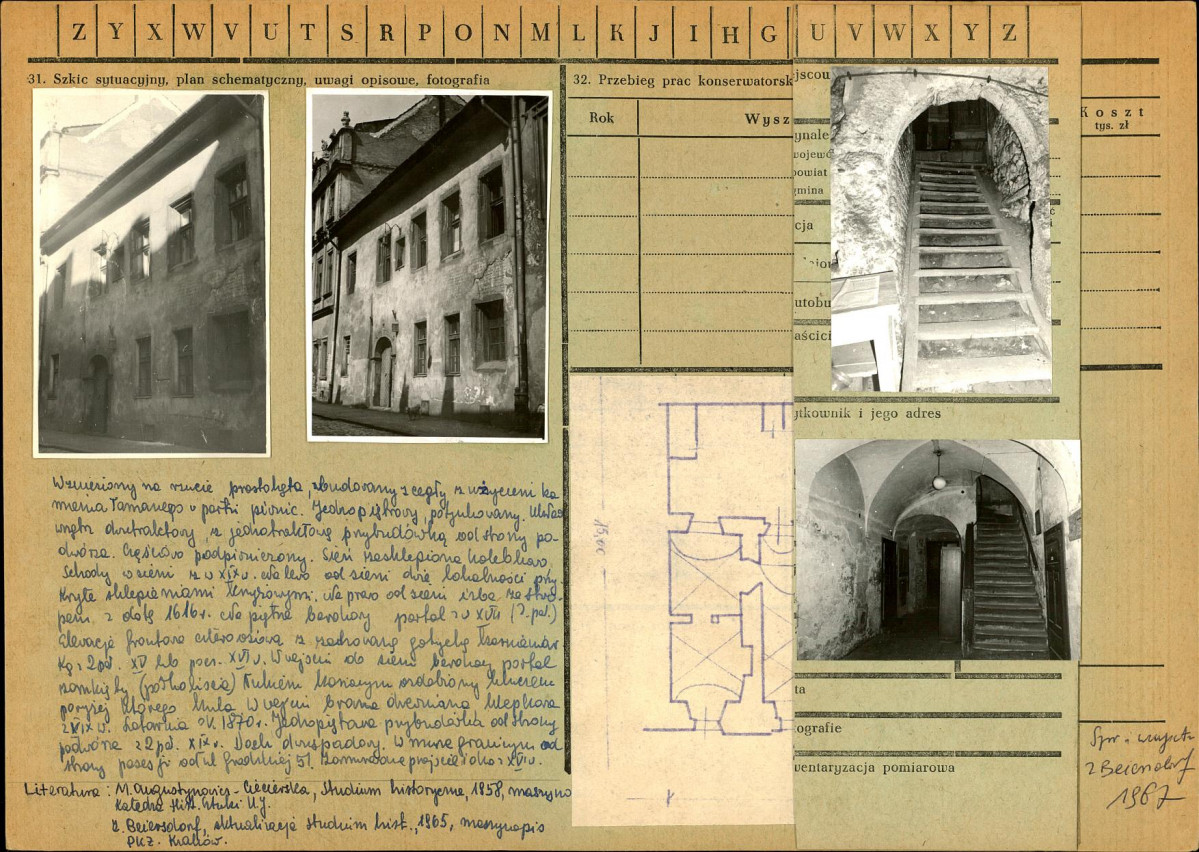 Z Y X W V U T S R P O N M L K J I H G
U V W X Y Z
31. Szkic sytuacyjny, plan schematyczny, uwagi opisowe, fotografia
32. Przebieg prac konserwatorsk
Rok
Wysz
Koszt
tys. zł
ejscou
ynale
wojewó
powiat
gmina
cja
utobu
aścici
ytkownik i jego adres
ta
ografie
wentaryzacja pomiarowa
15.00
Wzniesiony na rzucie prostokąta, zbudowany z cegły z użyciem ka
mienia łamanego w partii piwnic. Jednopiętrowy, potynkowany. Układ
wnętrz dwutraktowy, z jednotraktową przybudówką od strony po-
dwórza. Częściowo podpiwniczony. Sień zasklepiona kolebkowo.
Schody w sieni z w XIX w. Na lewo od sieni dwie lokalności przy-
kryte sklepieniami klasztornymi. Na prawo od sieni izba ze stro-
pem z datą 1616 r. Na piętrze barokowy portal z w XVII (I. poł.)
Elewacja frontowa czteroosiowa z zachowaną gotycką kamieniar
ką z 2 poł. XV lub pocz. XVI w. W wejściu do sieni barokowy portal
zamknięty (półkoliście) łukiem koszowym ozdobiony kluczem
poniżej którego kula. W wejściu brama drewniana klepkowa
z XIX w. Latarnia ok. 1870 r. Jednopiętrowa przybudówka od strony
podwórza z 2 poł. XIX w. Dach dwuspadowy. W murze granicznym od
strony posesji od ul. Grodzkiej 51. zamurowane przejście z ok. XVI w.
Literatura: M. Augustynowicz-Ciecierska, Studium historyczne, 1958, maszyno
Katedra Hist. Sztuki U.J.
Z. Beiersdorf, aktualizacja studium hist., 1965, maszynopis
PKZ. Kraków.
Spr. i uzupełn.
Z Beiersdorf
1967